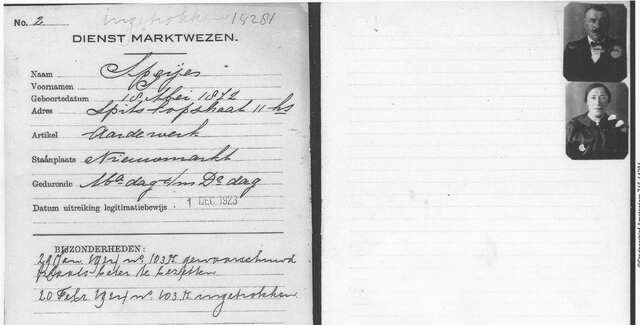 No. 2 ingetrokken 14281
DIENST MARKTWEZEN.
Naam Speijer
Voornamen
Geboortedatum 18 Mei 1872
Adres Spitskopstraat 11 hs
Artikel Aardewerk
Staánplaats Nieuwmarkt
Gedurende Ma dag t/m Do dag
Datum uitreiking legitimatiebewijs 1 DEC 1923
BIJZONDERHEDEN:
Jan 1924 no. 103 K gewaarschuwd
plaats beter te bezetten
20 Febr 1924 no. 103 K ingetrokken